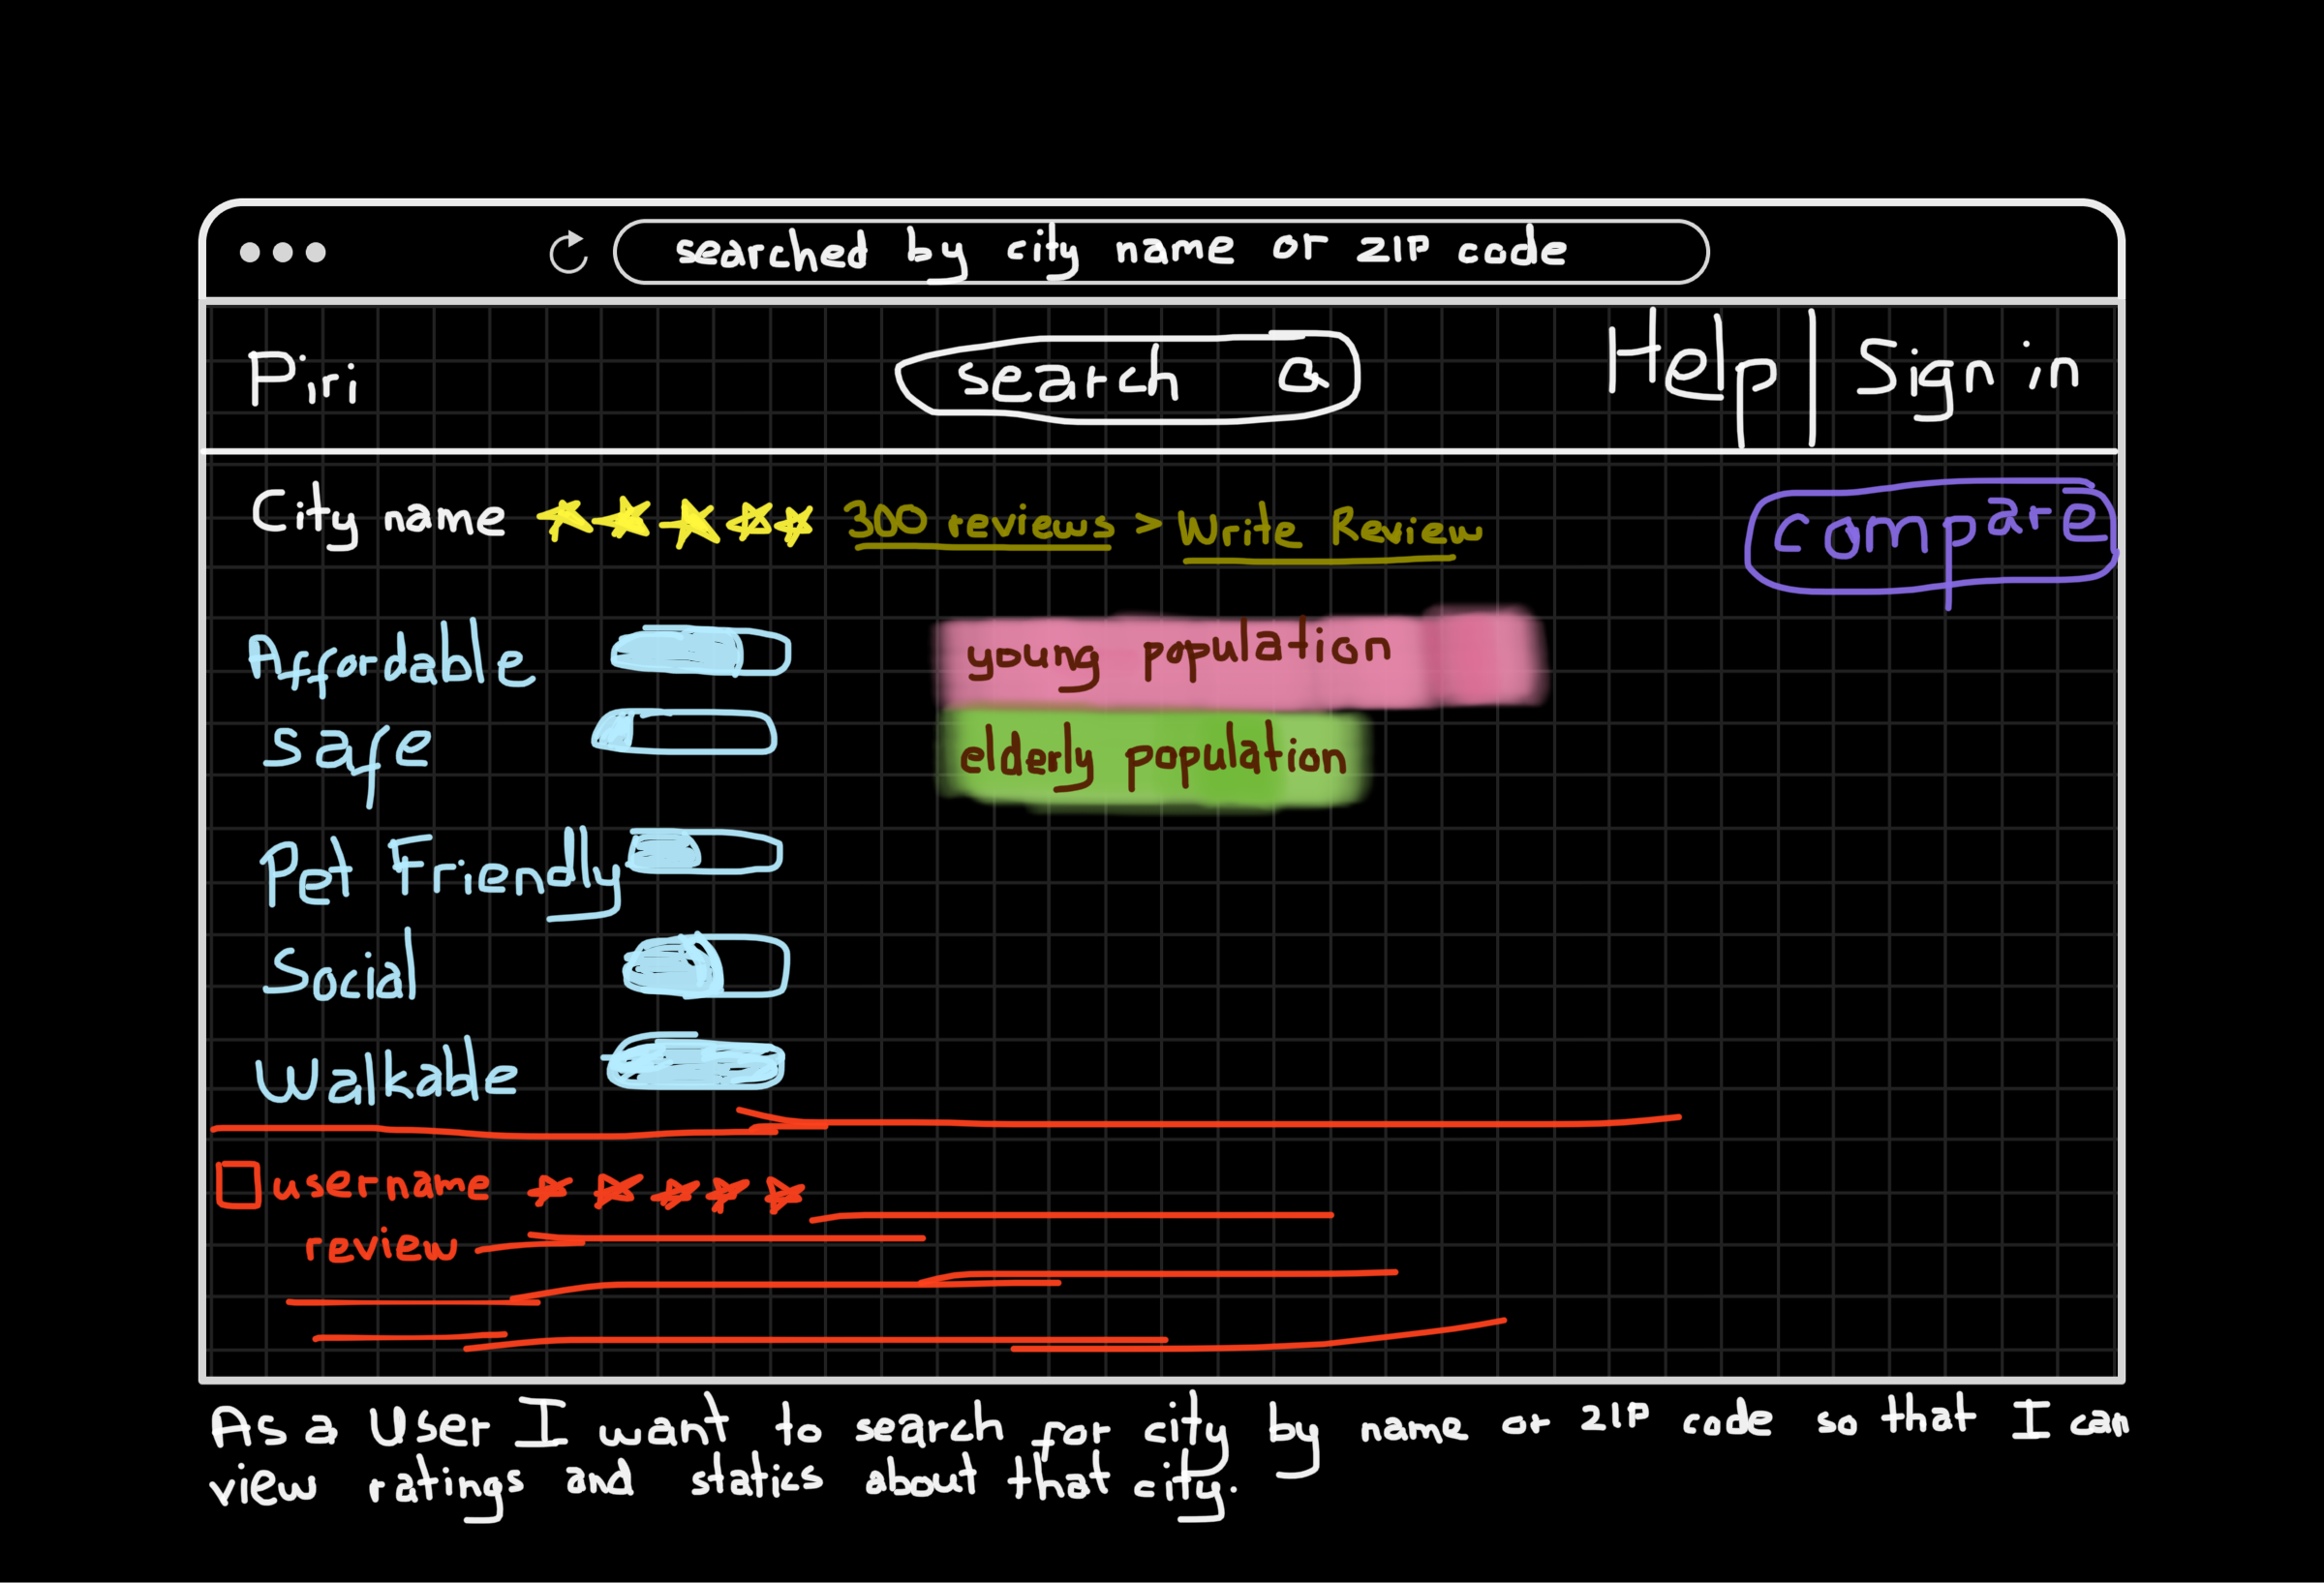 searched by city name or ZIP code
Piri search Help | Sign in
City name 300 reviews > Write Review compare
Affordable young population
safe elderly population
Pet Friendly
Social
Walkable
username
review
As a User I want to search for city by name or ZIP code so that I can
view ratings and statics about that city.